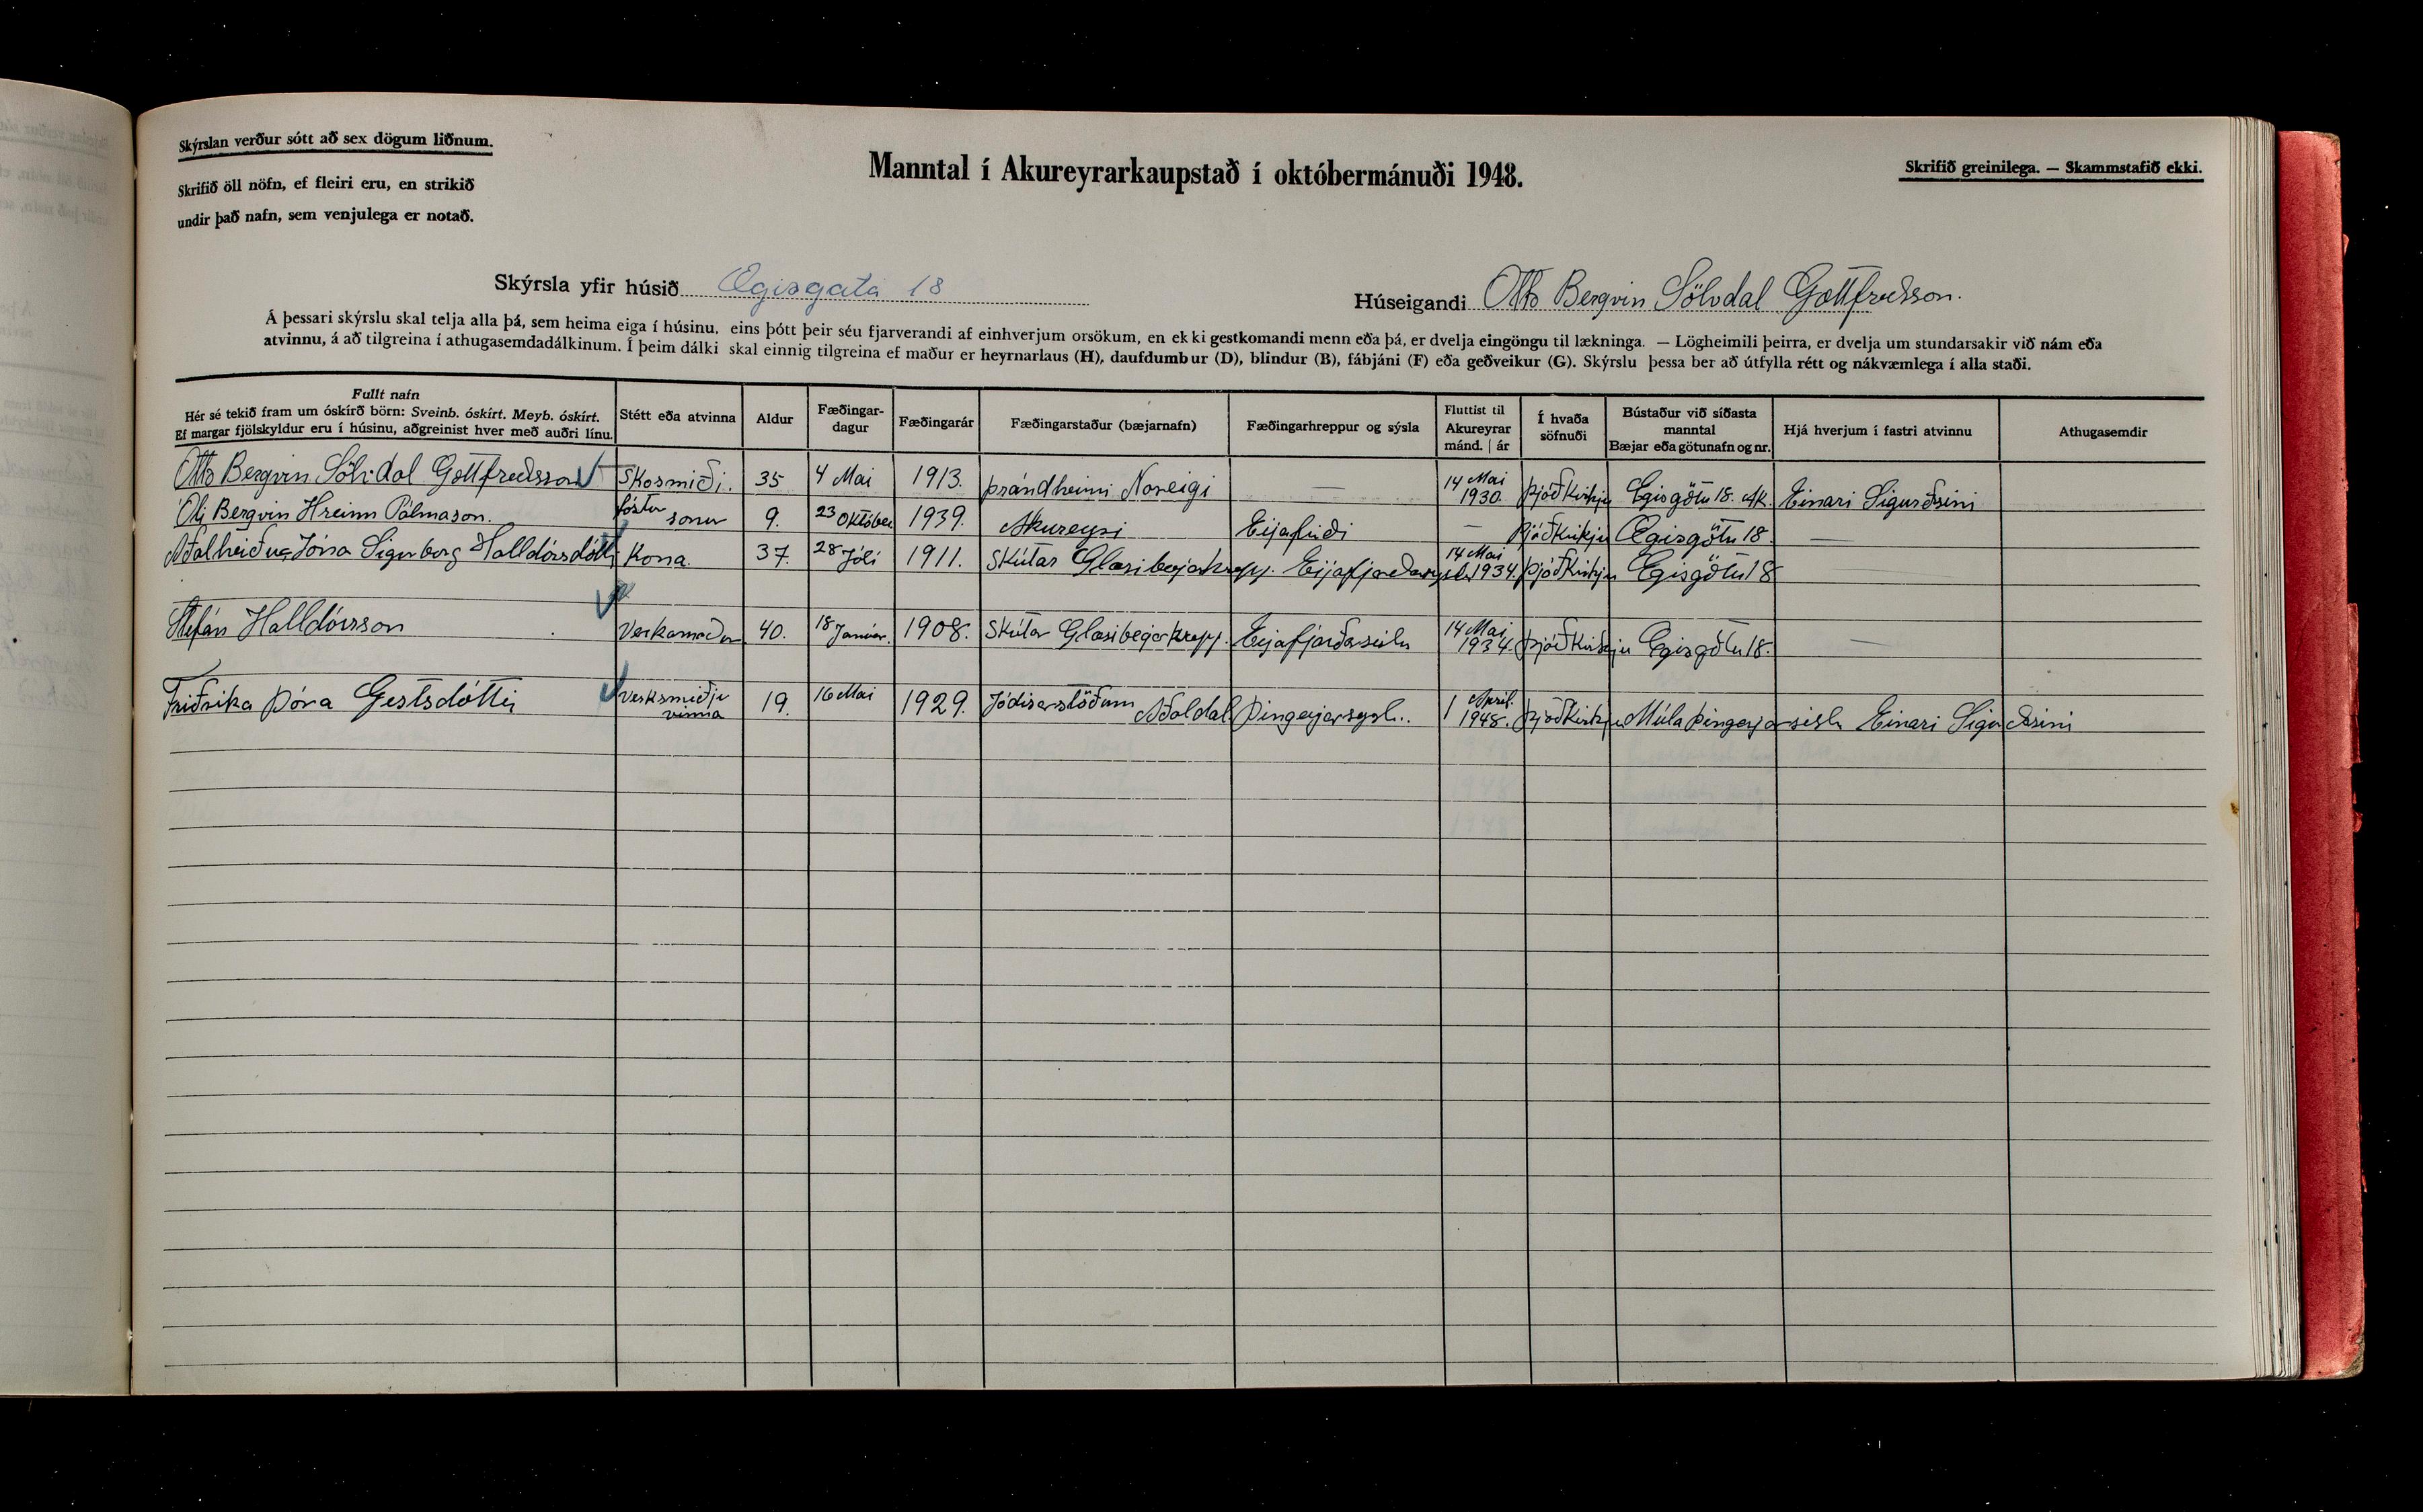 Skýrslan verður sótt að sex dögum liðnum.
Skrifið öll nöfn, ef fleiri eru, en strikið
undir það nafn, sem venjulega er notað.
Manntal í Akureyrarkaupstað í októbermánuði 1948.
Skrifið greinilega. — Skammstafið ekki.
Skýrsla yfir húsið Ægisgata 18
Húseigandi Otto Bergvin Sölvdal Gottfredsson.
Á þessari skýrslu skal telja alla þá, sem heima eiga í húsinu, eins þótt þeir séu fjarverandi af einhverjum orsökum, en ekki gestkomandi menn eða þá, er dvelja eingöngu til lækninga. — Lögheimili þeirra, er dvelja um stundarsakir við nám eða
atvinnu, á að tilgreina í athugasemdadálkinum. Í þeim dálki skal einnig tilgreina ef maður er heyrnarlaus (H), daufdumbur (D), blindur (B), fábjáni (F) eða geðveikur (G). Skýrslu þessa ber að útfylla rétt og nákvæmlega í alla staði.
Fullt nafn
Hér sé tekið fram um óskírð börn: Sveinb. óskírt. Meyb. óskírt.
Ef margar fjölskyldur eru í húsinu, aðgreinist hver með auðri línu.
Stétt eða atvinna
Aldur
Fæðingar-
dagur
Fæðingarár
Fæðingarstaður (bæjarnafn)
Fæðingarhreppur og sýsla
Fluttist til
Akureyrar
mánd. | ár
Í hvaða
söfnuði
Bústaður við síðasta
manntal
Bæjar eða götunafn og nr.
Hjá hverjum í fastri atvinnu
Athugasemdir
Otto Bergvin Sölvdal Gottfredsson Skosmiði. 35 4 Mai 1913. Þrándheimi Noreigi — 14 Mai 1930. Þjóðkirkju Egisgötu 18. Ak. Einari Sigurðsini
Óli Bergvin Hreinn Pálmason. fóstur sonur 9. 23 Október 1939. Akureyri Eijafirði — Þjóðkirkju Ægisgötu 18. —
Aðalheiður Jóna Sigurborg Halldórsdótti Kona. 37. 28 Júli 1911. Skútar Glæsibæjahrepp. Eijafjarðarsysla 14 Mai 1934. Þjóðkirkju Egisgötu 18
Stefán Halldórsson Verkamaður 40. 18 Janúar. 1908. Skútar Glæsibejarhrepp. Eijafjarðarsislu 14 Mai 1934. Þjóðkirkju Egisgötu 18. —
Friðrika Þóra Gestsdóttir Verksmiðju vinna 19. 16 Mai 1929. Jódisarstöðum Aðaldal Þingeyjarsysl.. 1 April. 1948. Þjóðkirkju Múla Þingeyjarsislu Einari Sigurðsini